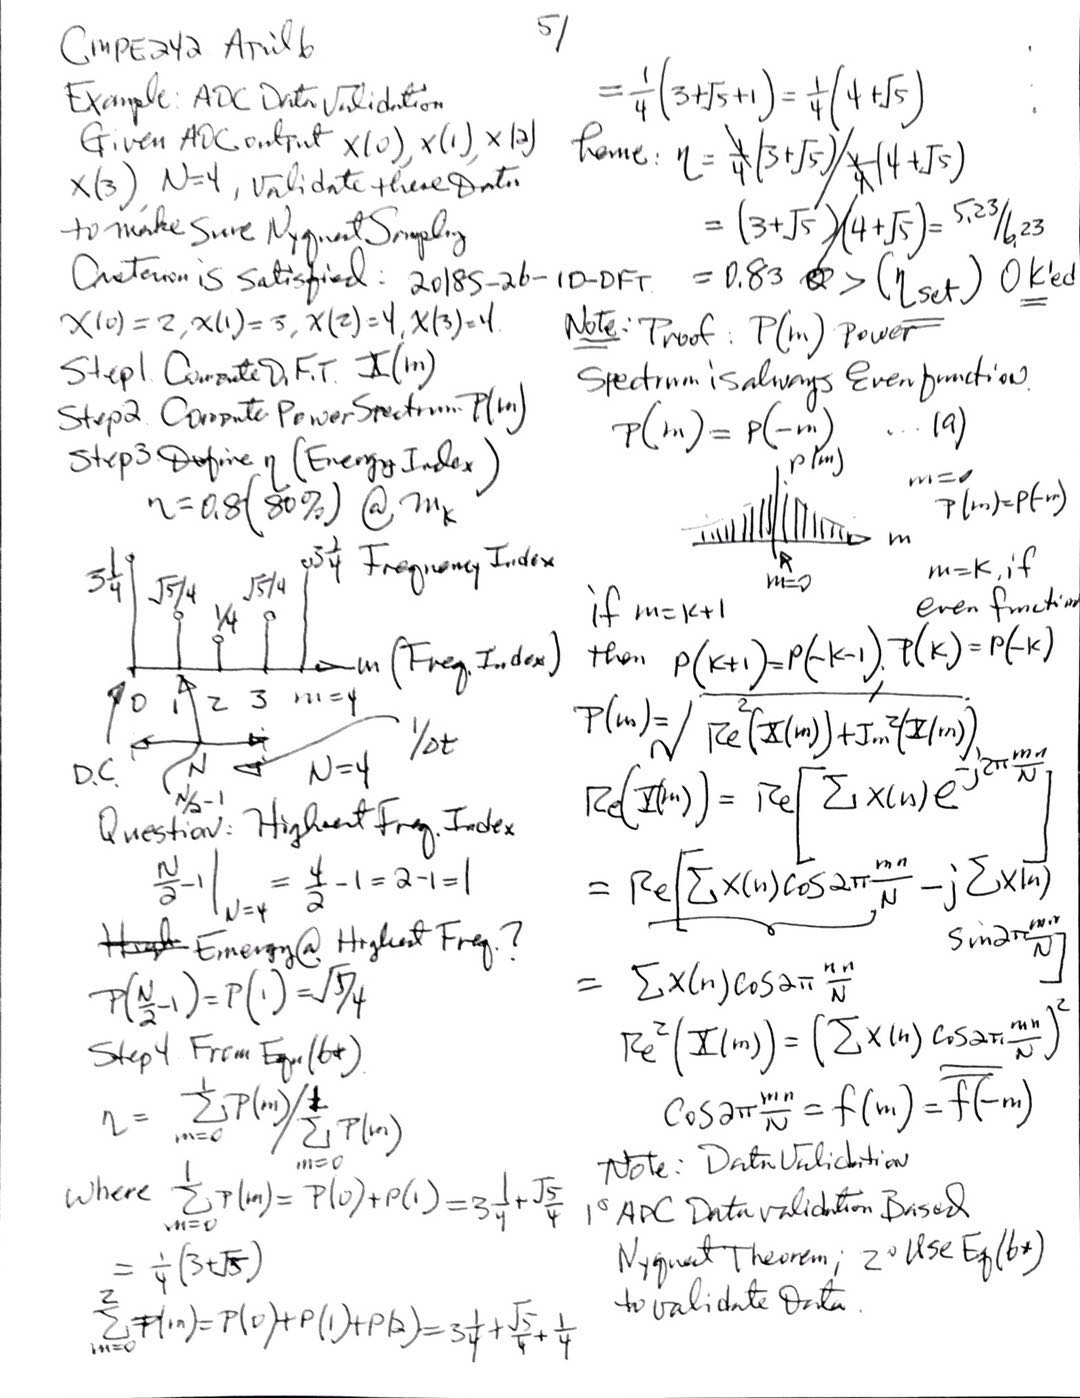 CMPE242 April 6
51
Example: ADC Data Validation
Given ADC output x(0), x(1), x(2)
x(3), N=4, validate these Data
to make sure Nyquest Sampling
Criterion is satisfied: 2018S-26-1D-DFT
X(0)=2, x(1)=3, X(2)=4, X(3)=4.
Step1. Compute D.F.T. X(m)
Step2. Compute Power Spectrum P(m)
Step3 Define η (Energy Index)
η=0.8(80%) @ mk
3 1/4 √5/4 1/4 √5/4 3 1/4 Frequency Index
m (Freq. Index)
0 1 2 3 m=4
D.C. N N=4 1/Δt
N/2-1
Question: Highest Freq. Index
N/2-1|N=4 = 4/2-1=2-1=1
Energy @ Highest Freq.?
P(N/2-1)=P(1)=√5/4
Step4 From Eqn(6*)
η = Σ(m=0 to 1) P(m) / Σ(m=0) P(m)
where Σ(m=0 to 1) P(m)= P(0)+P(1)=3 1/4+√5/4
= 1/4(3+√5)
Σ(m=0 to 2) P(m)=P(0)+P(1)+P(2)=3 1/4+√5/4+1/4
= 1/4(3+√5+1)= 1/4(4+√5)
η= 1/4(3+√5)/1/4(4+√5)
= (3+√5)/(4+√5)= 5.23/6.23
= 0.83 > (ηset) OK'ed
Note: Proof: P(m) Power
Spectrum is always Even function.
P(m)= P(-m) ...(a)
P(m)
m=0
P(m)=P(-m)
m
m=0
m=k, if
even function
if m=k+1
then P(k+1)=P(-k-1), P(k)=P(-k)
P(m)=√Re²(X(m))+Im²(X(m))
Re(X(m)) = Re[Σ x(n) e^-j2π mn/N]
= Re[Σ x(n) cos2π mn/N - j Σ x(n)
sin2π mn/N]
= Σ x(n) cos2π mn/N
Re²(X(m)) = (Σ x(n) cos2π mn/N)²
Cos2π mn/N = f(m) = f(-m)
Note: Data Validation
1° ADC Data validation Based
Nyquest Theorem; 2° Use Eq(6*)
to validate Data.